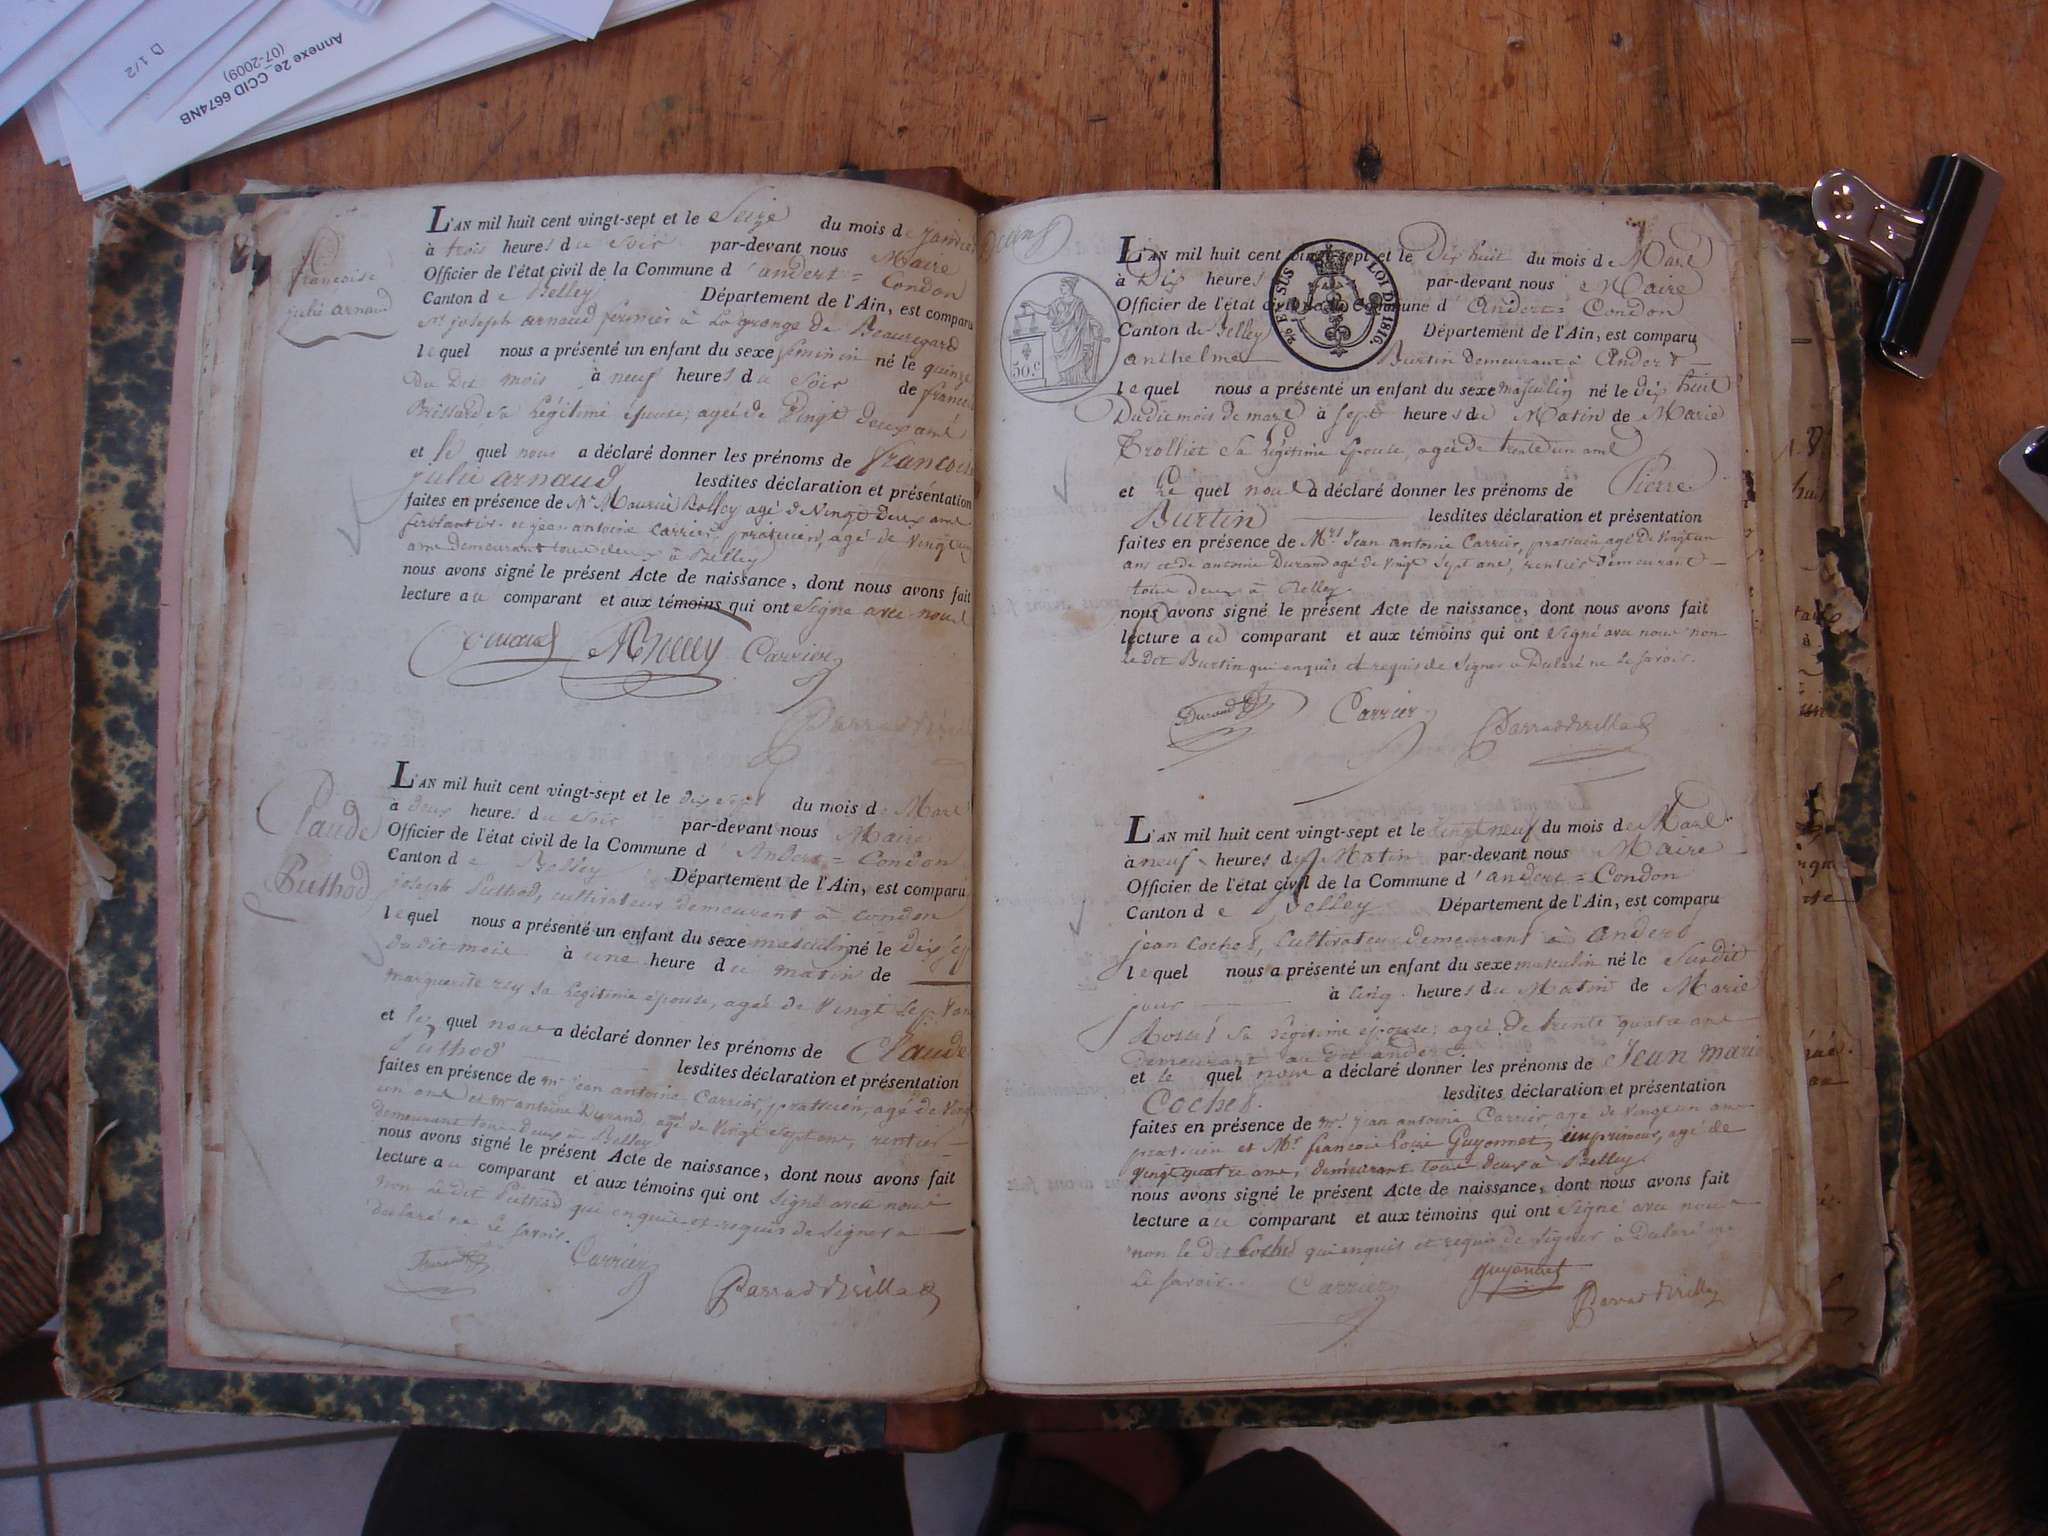 D 1/2
Annexe 2e_CCID 6674NB
(07-2009)
francoise
julie arnaud
L'AN mil huit cent vingt-sept et le Seize du mois de janvier
à trois heures du Soir par-devant nous Maire
Officier de l'état civil de la Commune d'andert = Condon
Canton de Belley Département de l'Ain, est comparu
Sr joseph arnaud fermier à La grange de Beauregard
lequel nous a présenté un enfant du sexe feminin né le quinze
Du Dit mois à neuf heures du Soir de
Brissard Sa Légitime épouse, agée de Vingt deux ans
et le quel nous a déclaré donner les prénoms de francoise
julie arnaud lesdites déclaration et présentation
faites en présence de Mr Maurice Bolley agé de Vingt Deux ans
ferblantier et jean antoine Carrier, praticien, agé de Vingt un
ans Demeurant tous deux à Belley
nous avons signé le présent Acte de naissance, dont nous avons fait
lecture au comparant et aux témoins qui ont Signé avec nous
Carrier
Parrad Brillat
Claude
Puthod
L'AN mil huit cent vingt-sept et le dix sept du mois de Mars
à deux heures du Soir par-devant nous Maire
Officier de l'état civil de la Commune d'Andert = Condon
Canton de Belley Département de l'Ain, est comparu
joseph Puthod, cultivateur demeurant à Condon
lequel nous a présenté un enfant du sexe masculin né le Dix sept
du dit mois à une heure du matin de
marguerite rey sa Légitime épouse, agée de Vingt Sept ans
et le quel nous a déclaré donner les prénoms de Claude
Puthod lesdites déclaration et présentation
faites en présence de mr jean antoine Carrier, praticien, agé de Vingt
un ans et mr antoine Durand, agé de Vingt Sept ans, rentier
demeurant tous Deux à Belley
nous avons signé le présent Acte de naissance, dont nous avons fait
lecture au comparant et aux témoins qui ont Signé avec nous
non Le dit Puthod qui enquis et requis de Signer a
Déclaré ne Le Savoir.
Durand Carrier Parrad Brillat
50.c
% EN SUS LOI DE 1816
L'AN mil huit cent vingt-sept et le Dix huit du mois de Mars
à Dix heures par-devant nous Maire
Officier de l'état civil de la Commune d'Andert = Condon
Canton de Belley Département de l'Ain, est comparu
anthelme Burtin demeurant à Andert
lequel nous a présenté un enfant du sexe masculin né le dix huit
Du dit mois de mars à Sept heures du Matin de Marie
Trolliet Sa Légitime Epouse, agée de trente un ans
et Le quel nous a déclaré donner les prénoms de Pierre
Burtin lesdites déclaration et présentation
faites en présence de Mrs Jean antoine Carrier, praticien agé De Vingt un
ans et de antoine Durand agé de Vingt Sept ans, rentier Demeurant
tous deux à Belley
nous avons signé le présent Acte de naissance, dont nous avons fait
lecture au comparant et aux témoins qui ont Signé avec nous non
Le Dit Burtin qui enquis et requis de Signer a Déclaré ne Le Savoir.
Durand Carrier Parrad Brillat
L'AN mil huit cent vingt-sept et le Vingt neuf du mois de Mars
à neuf heures du Matin par-devant nous Maire
Officier de l'état civil de la Commune d'andert = Condon
Canton de Belley Département de l'Ain, est comparu
jean Cochet, Cultivateur demeurant à andert
lequel nous a présenté un enfant du sexe masculin né le Susdit
jour à Cinq heures du Matin de Marie
Sa Légitime épouse, agée de trente quatre ans
Demeurant au dit andert.
et le quel nous a déclaré donner les prénoms de Jean marie
Cochet. lesdites déclaration et présentation
faites en présence de mr. jean antoine Carrier agé de Vingt un ans
praticien et Mr francois Guyonnet, imprimeur, agé de
Vingt quatre ans, demeurant tous deux à Belley
nous avons signé le présent Acte de naissance, dont nous avons fait
lecture au comparant et aux témoins qui ont Signé avec nous
non le dit Cochet qui enquis et requis de Signer a Déclaré ne
Le Savoir. Carrier guyonnet Parrad Brillat